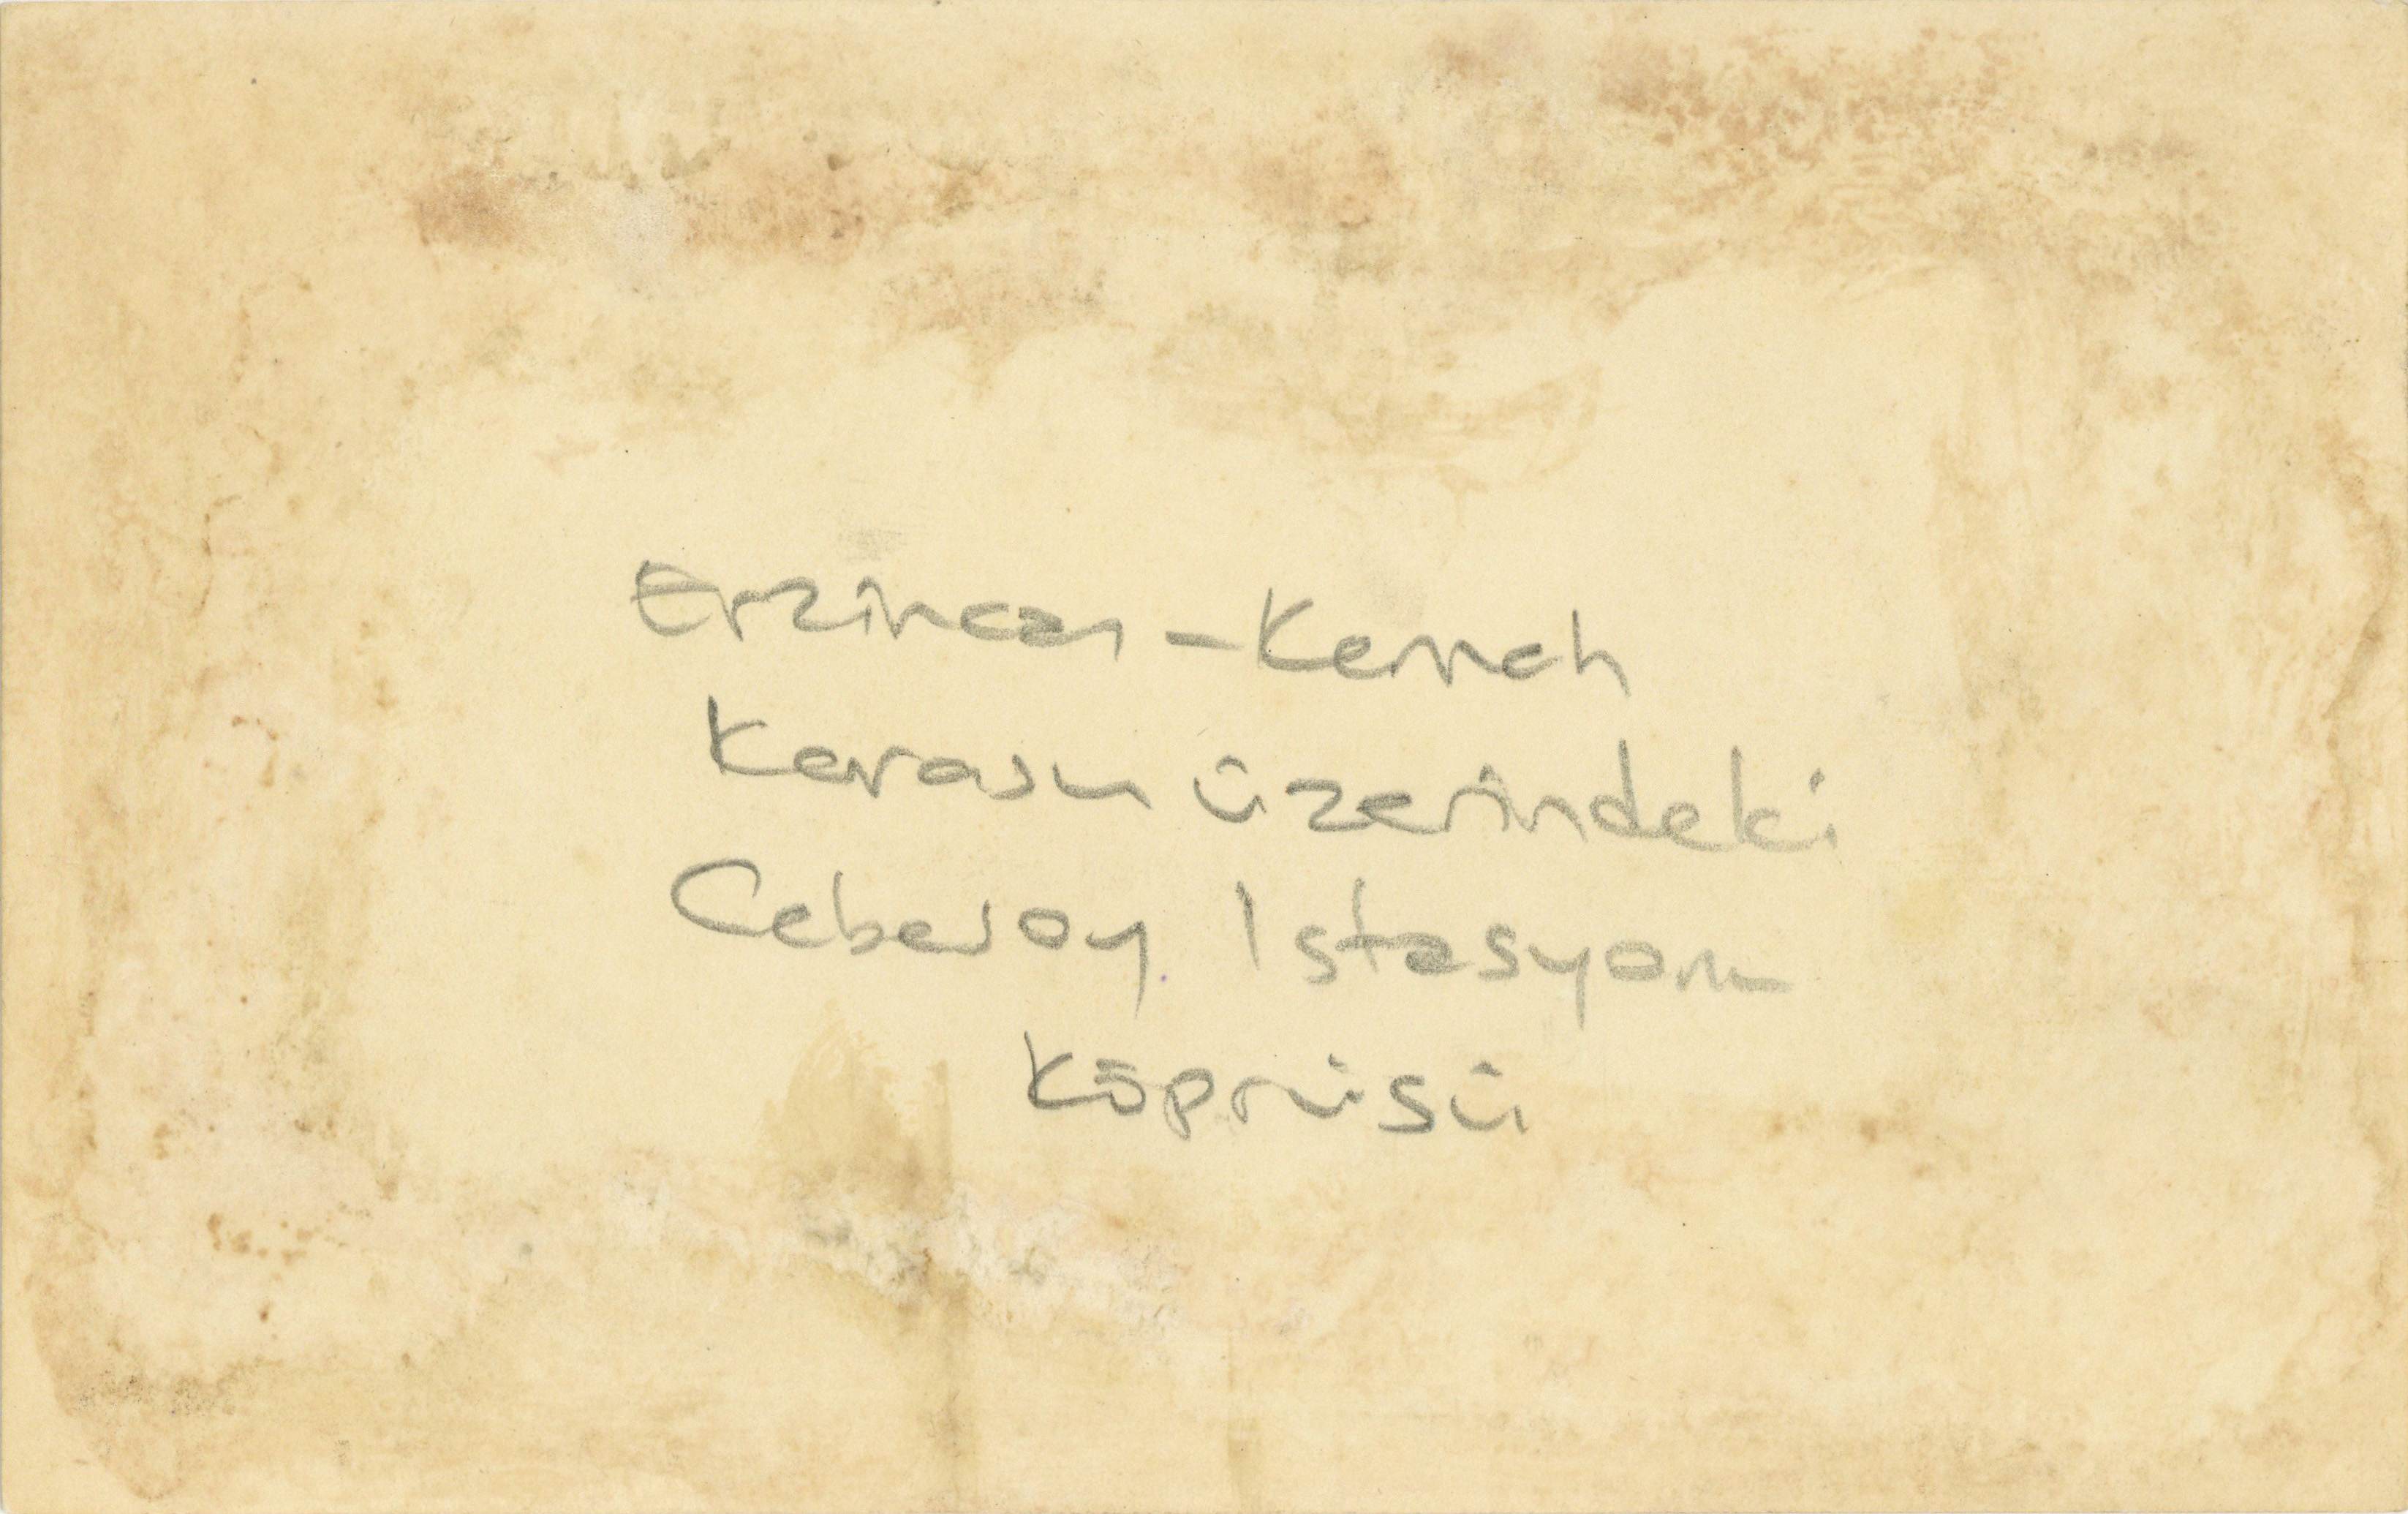 Erzincan-Kemah
Karasu üzerindeki
Cebesoy Istasyonu
Köprüsü